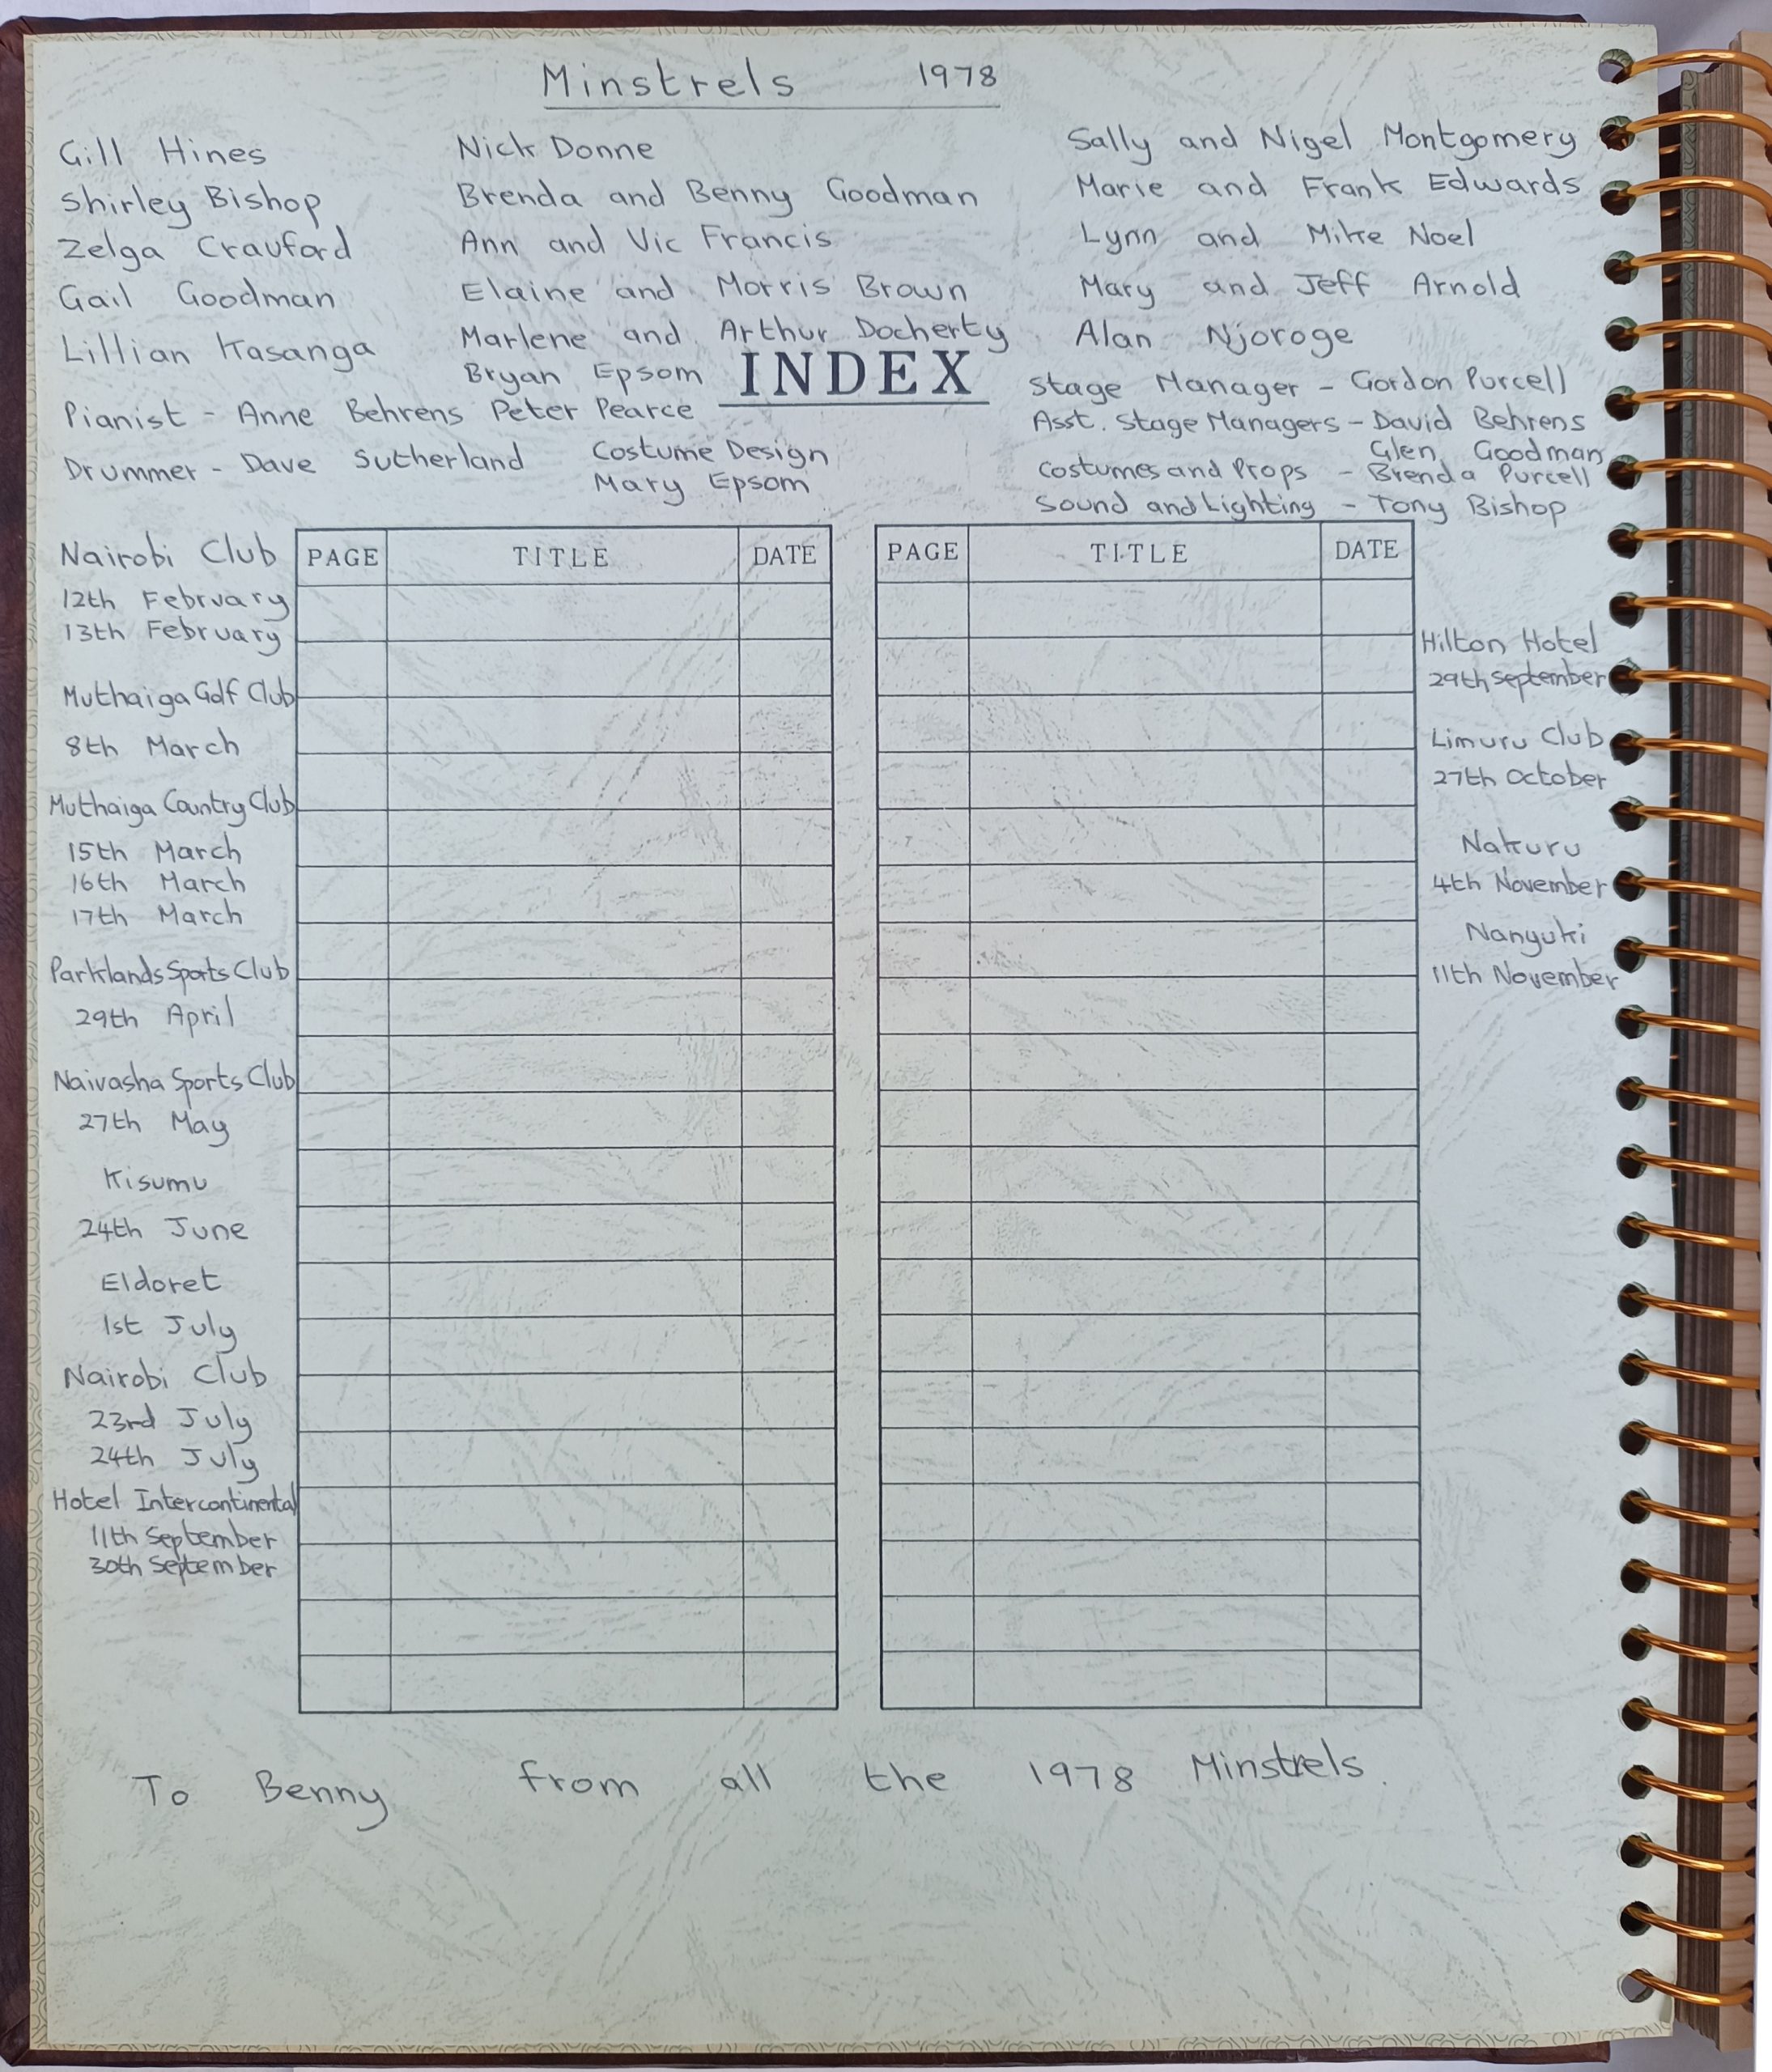 Minstrels 1978
Gill Hines
Shirley Bishop
Zelga Crauford
Gail Goodman
Lillian Kasanga
Pianist - Anne Behrens
Drummer - Dave Sutherland
Nick Donne
Brenda and Benny Goodman
Ann and Vic Francis
Elaine and Morris Brown
Marlene and Arthur Docherty
Bryan Epsom
Peter Pearce
Costume Design
Mary Epsom
Sally and Nigel Montgomery
Marie and Frank Edwards
Lynn and Mike Noel
Mary and Jeff Arnold
Alan Njoroge
Stage Manager - Gordon Purcell
Asst. Stage Managers - David Behrens
Glen Goodman
Costumes and Props - Brenda Purcell
Sound and Lighting - Tony Bishop
INDEX
PAGE TITLE DATE
PAGE TITLE DATE
Nairobi Club
12th February
13th February
Muthaiga Golf Club
8th March
Muthaiga Country Club
15th March
16th March
17th March
Parklands Sports Club
29th April
Naivasha Sports Club
27th May
Kisumu
24th June
Eldoret
1st July
Nairobi Club
23rd July
24th July
Hotel Intercontinental
11th September
30th September
Hilton Hotel
29th September
Limuru Club
27th October
Nakuru
4th November
Nanyuki
11th November
To Benny from all the 1978 Minstrels.